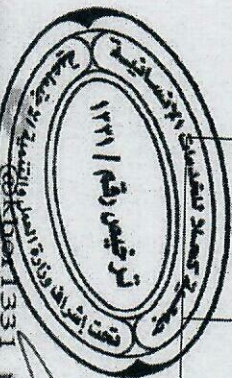 جمعية كهلا للخدمات الإنسانية
ترخيص رقم / ١٣٣١
تحت إشراف وزارة العمل والتنمية الاجتماعية
@Khor1331